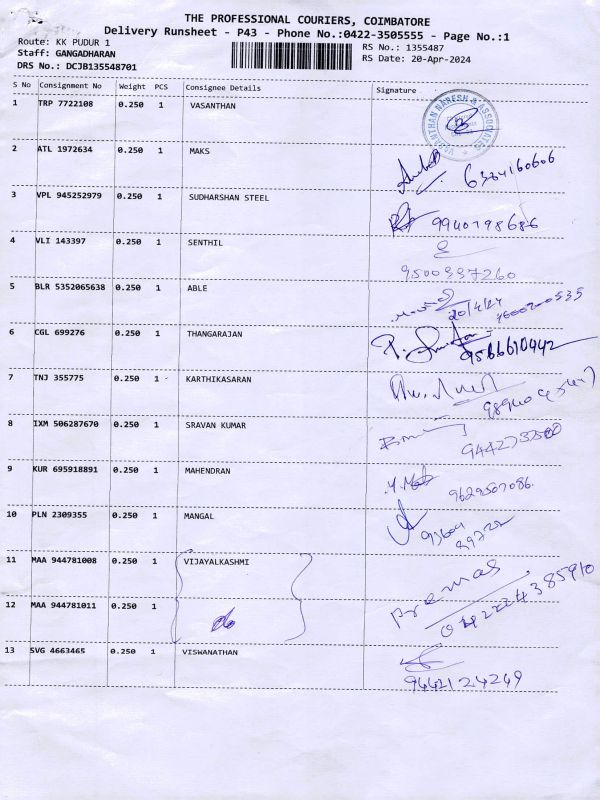 THE PROFESSIONAL COURIERS, COIMBATORE
Delivery Runsheet - P43 - Phone No.:0422-3505555 - Page No.:1
Route: KK PUDUR 1 RS No.: 1355487
Staff: GANGADHARAN RS Date: 20-Apr-2024
DRS No.: DCJB135548701
S No Consignment No Weight PCS Consignee Details Signature
1 TRP 7722108 0.250 1 VASANTHAN
NARESH & ASSOCIATES
2 ATL 1972634 0.250 1 MAKS
6384160606
3 VPL 945252979 0.250 1 SUDHARSHAN STEEL
9940798686
4 VLI 143397 0.250 1 SENTHIL
9500337260
5 BLR 5352065638 0.250 1 ABLE
20/4/24
6 CGL 699276 0.250 1 THANGARAJAN
9566610442
7 TNJ 355775 0.250 1 KARTHIKASARAN
8 IXM 506287670 0.250 1 SRAVAN KUMAR
9 KUR 695918891 0.250 1 MAHENDRAN
9629507086.
10 PLN 2309355 0.250 1 MANGAL
11 MAA 944781008 0.250 1 VIJAYALKASHMI
Premas
12 MAA 944781011 0.250 1
13 SVG 4663465 0.250 1 VISWANATHAN
9442124249